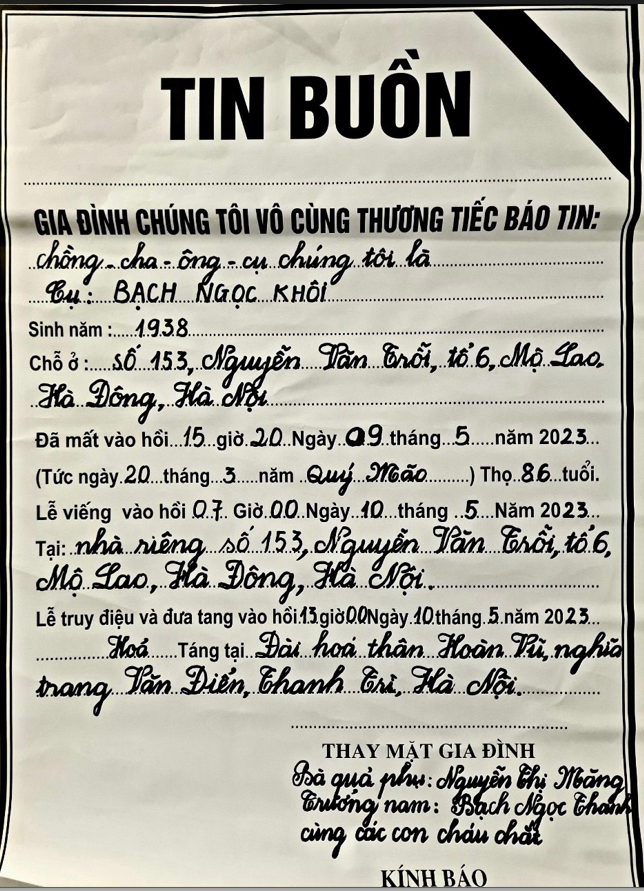 TIN BUỒN
GIA ĐÌNH CHÚNG TÔI VÔ CÙNG THƯƠNG TIẾC BÁO TIN:
chồng - cha - ông - cụ chúng tôi là
Cụ: BẠCH NGỌC KHÔI
Sinh năm: 1938
Chỗ ở: số 153, Nguyễn Văn Trỗi, tổ 6, Mộ Lao,
Hà Đông, Hà Nội
Đã mất vào hồi 15 giờ 20 Ngày 09 tháng 5 năm 2023
(Tức ngày 20 tháng 3 năm Quý Mão) Thọ 86 tuổi.
Lễ viếng vào hồi 07 Giờ 00 Ngày 10 tháng 5 Năm 2023
Tại: nhà riêng số 153, Nguyễn Văn Trỗi, tổ 6,
Mộ Lao, Hà Đông, Hà Nội.
Lễ truy điệu và đưa tang vào hồi 13 giờ 00 Ngày 10 tháng 5 năm 2023
Hoả Táng tại Đài hoá thân Hoàn Vũ, nghĩa
trang Văn Điển, Thanh Trì, Hà Nội.
THAY MẶT GIA ĐÌNH
Bà quả phụ: Nguyễn Thị Măng
Trưởng nam: Bạch Ngọc Thanh
cùng các con cháu chắt
KÍNH BÁO